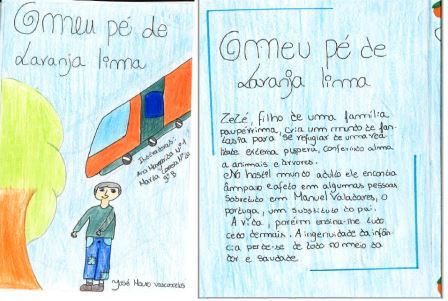 O meu pé de
Laranja lima
Ilustradoras
Ana Margarida nº1
Maria
9ºB
José Mauro Vasconcelos
O meu pé de
Laranja lima
Zezé, filho de uma família
paupérrima, cria um mundo de fan-
tasia para se refugiar de uma rea
lidade externa, conferindo alma
a animais e árvores.
No hostil mundo adulto ele encontra
âmparo e afeto em algumas pessoas
sobretudo em Manuel Valadares, o
portuga, um substituto do pai.
A vida, porém ensina-lhe tudo
cedo demais. A ingenuidade da infân-
cia perde-se de todo no meio da
dor e saudade